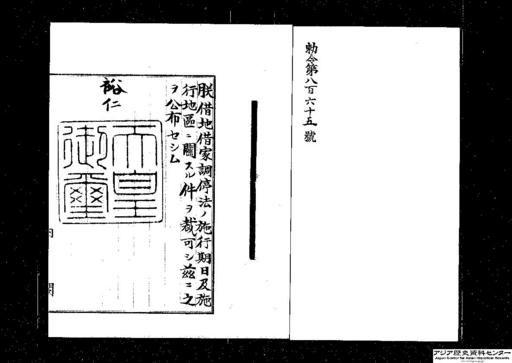 勅令第八百六十五號
朕借地借家調停法ノ施行期日及施
行地區ニ關スル件ヲ裁可シ茲ニ之
ヲ公布セシム
裕仁
天皇
御璽
内閣
アジア歴史資料センター
Japan Center for Asian Historical Records